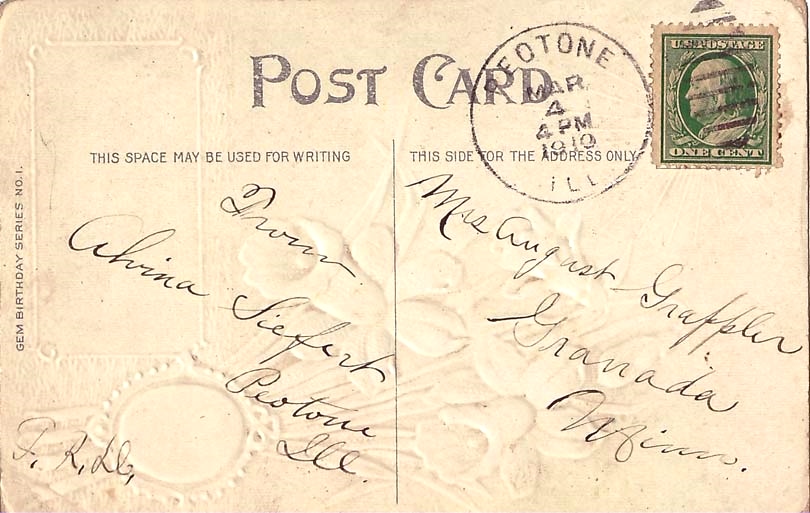 POST CARD
PEOTONE
MAR
4
4 PM
1910
ILL
U.S. POSTAGE
ONE CENT
THIS SPACE MAY BE USED FOR WRITING
THIS SIDE FOR THE ADDRESS ONLY
GEM BIRTHDAY SERIES NO. 1.
From
Alvina Siefert
Peotone
Ill.
Mrs August Grappler
Granada
Minn.